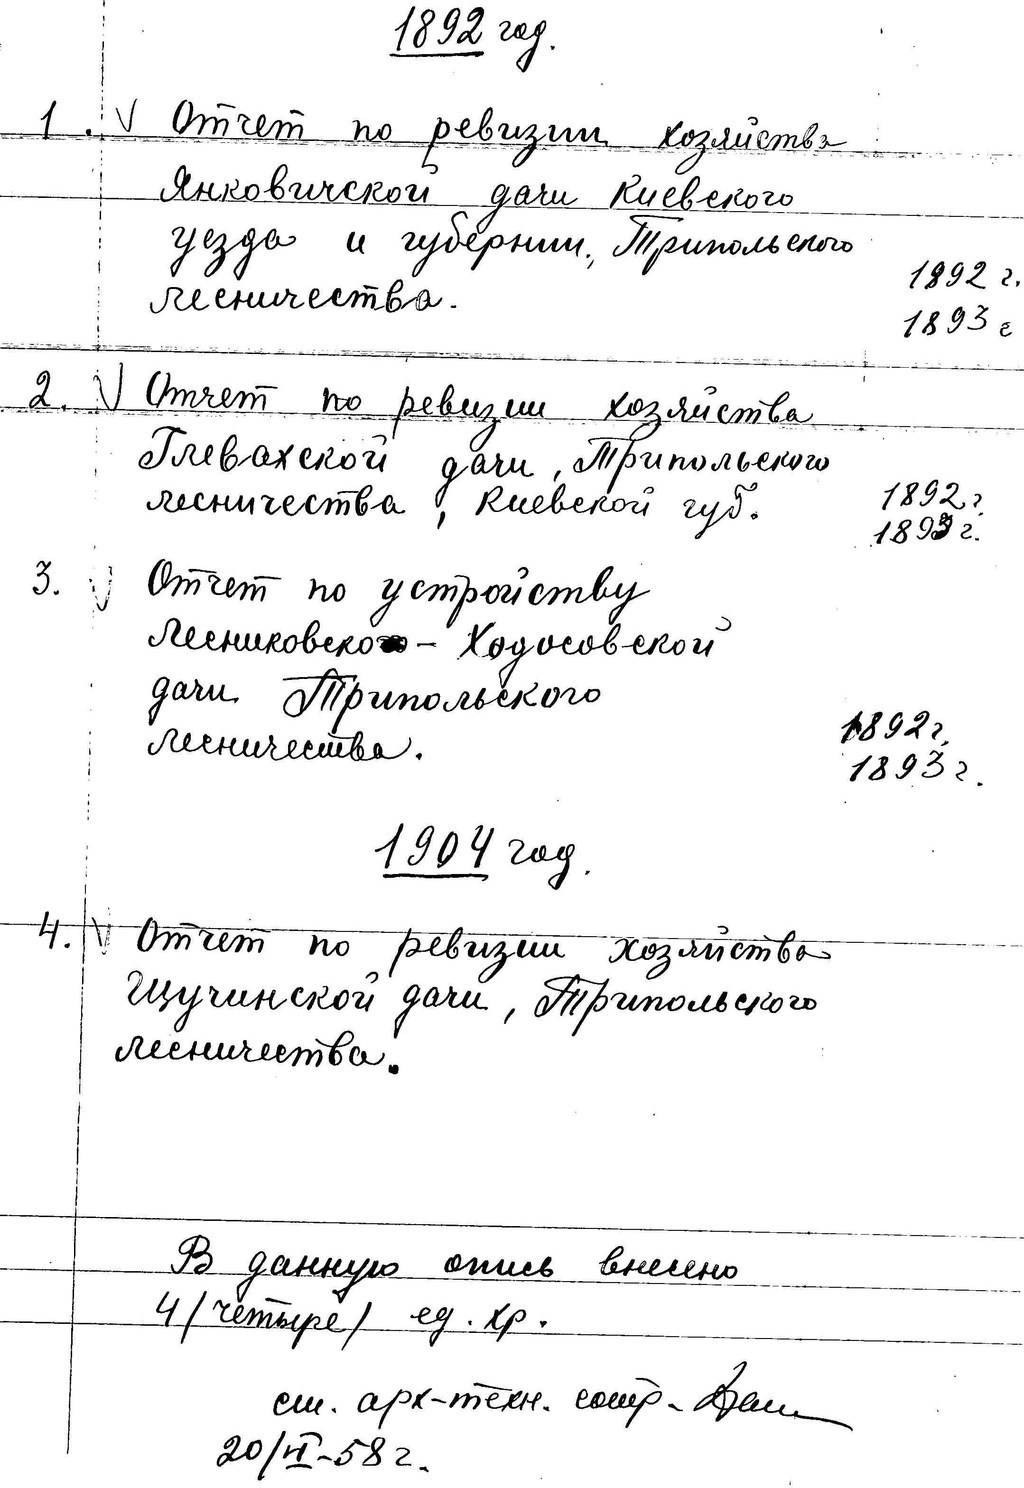 1892 год.
1. V Отчет по ревизии хозяйства
Янковичской дачи Киевского
уезда и губернии, Трипольского
лесничества.
1892 г.
1893 г
2. V Отчет по ревизии хозяйства
Глевахской дачи, Трипольского
лесничества, Киевской губ.
1892 г.
1893 г.
3. V Отчет по устройству
Лесниковско - Ходосовской
дачи Трипольского
лесничества.
1892 г.
1893 г.
1904 год.
4. V Отчет по ревизии хозяйства
Щучинской дачи, Трипольского
лесничества.
В данную опись внесено
4 /четыре/ ед. хр.
ст. арх-техн. сотр-
20/VI-58 г.